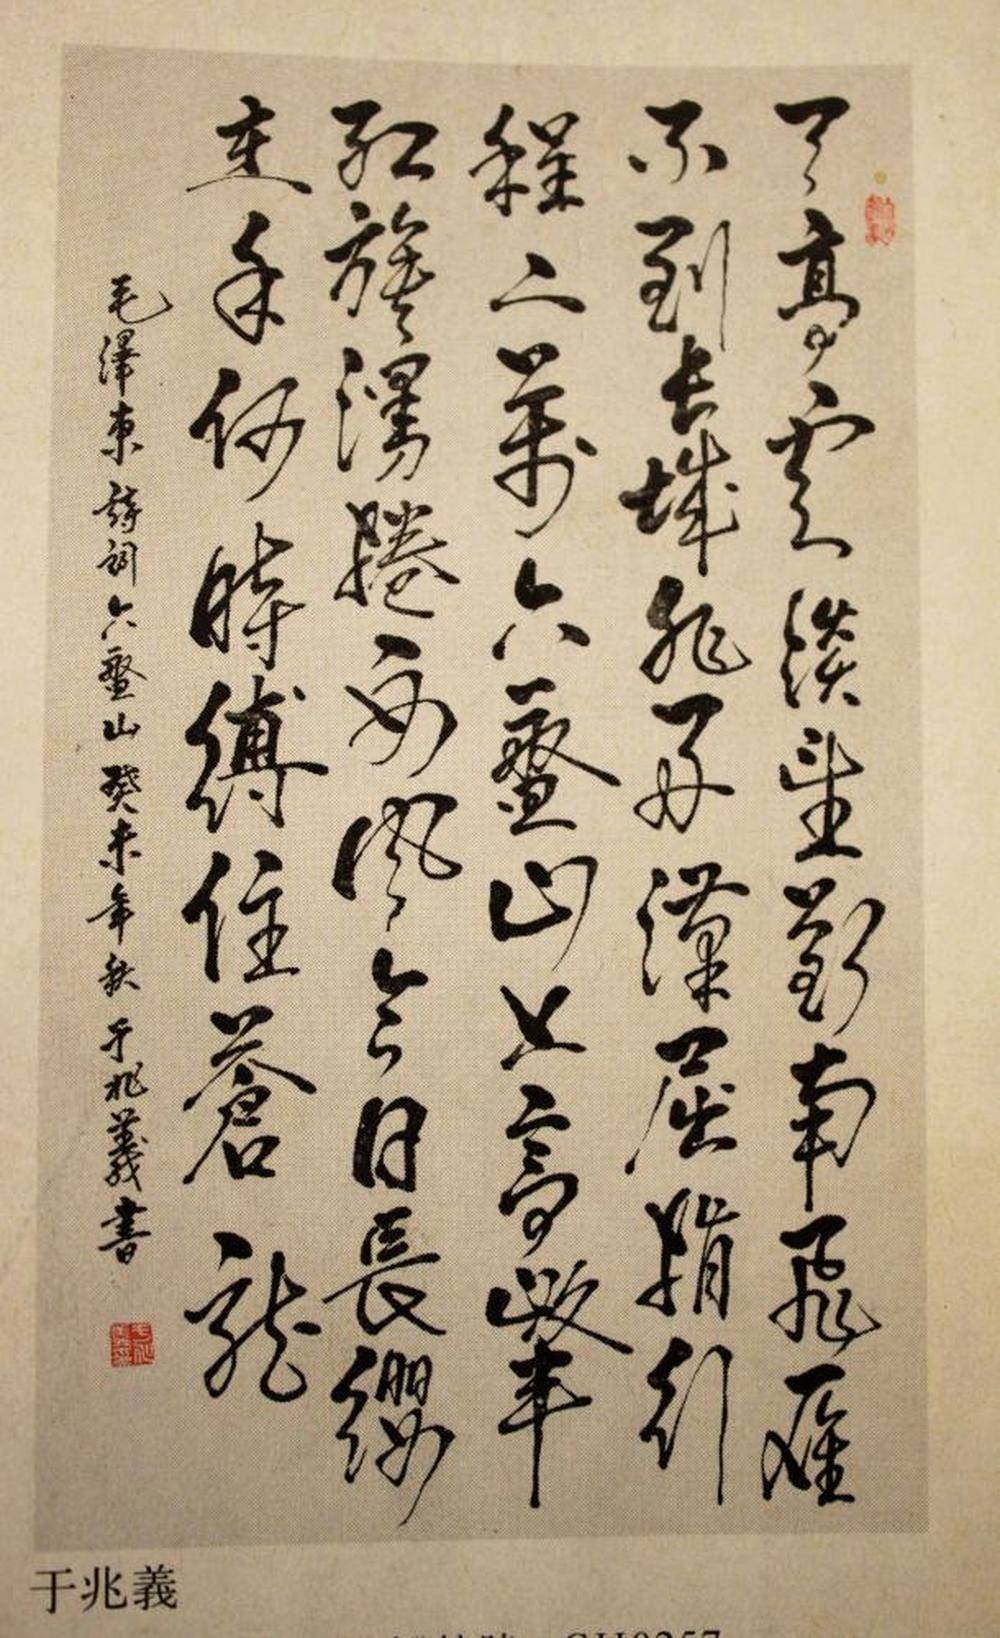 天高雲淡望斷南飛雁
不到长城非好漢屈指行
程二萬六盤山上高峯
紅旗漫捲西風今日長纓
在手何時縛住蒼龍
毛澤東詩詞六盤山 癸未年秋 于兆義書
于兆義